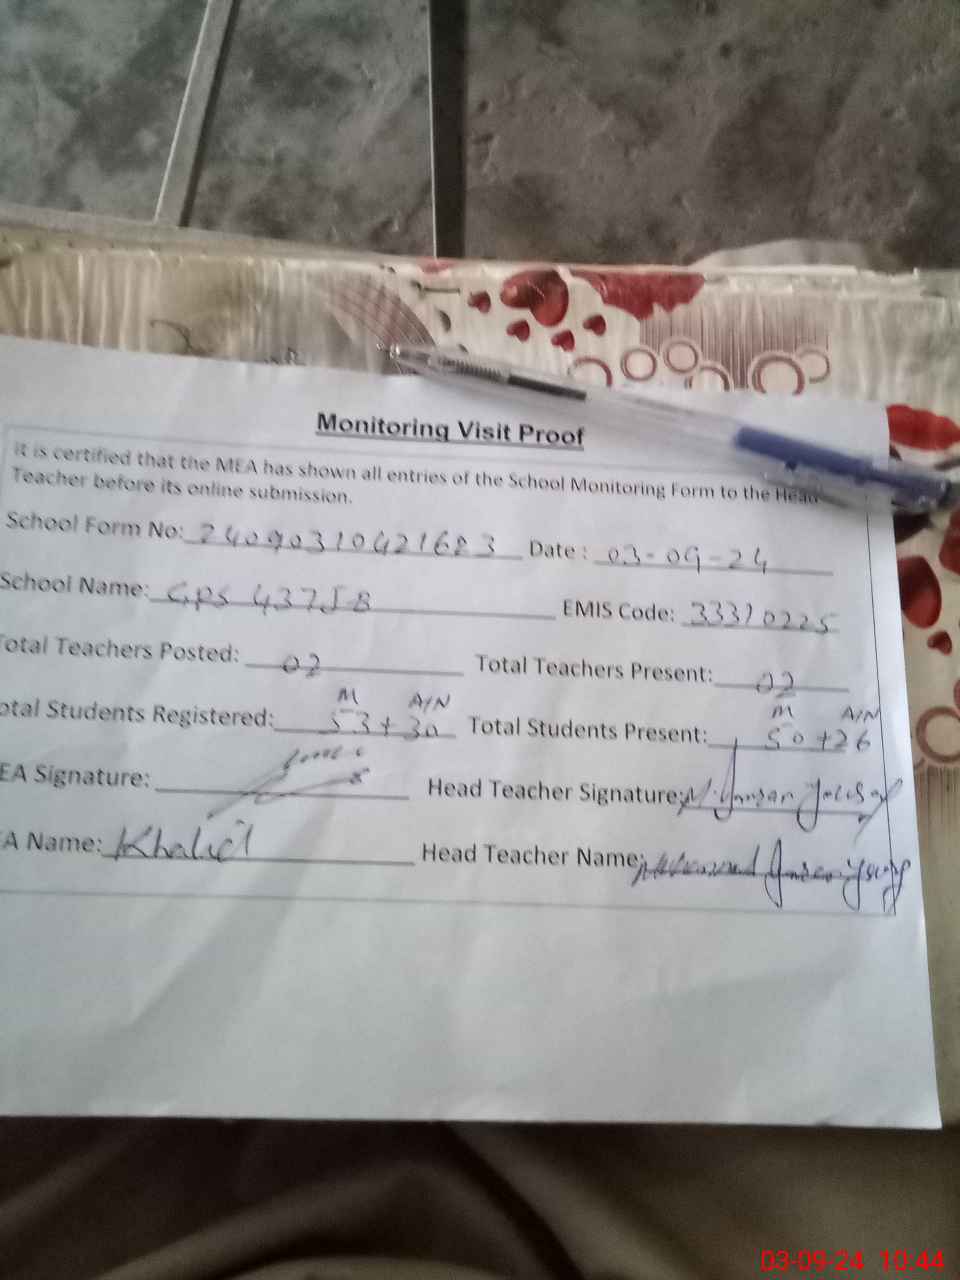 Monitoring Visit Proof
It is certified that the MEA has shown all entries of the School Monitoring Form to the Head
Teacher before its online submission.
School Form No: 24090310421683 Date : 03-09-24
School Name: GPS 437JB EMIS Code: 33310225
Total Teachers Posted: 02 Total Teachers Present: 02
M A/N M A/N
otal Students Registered: 53+30 Total Students Present: 50+26
EA Signature: Head Teacher Signature:
A Name: Khalid Head Teacher Name:
03-09-24 10:44